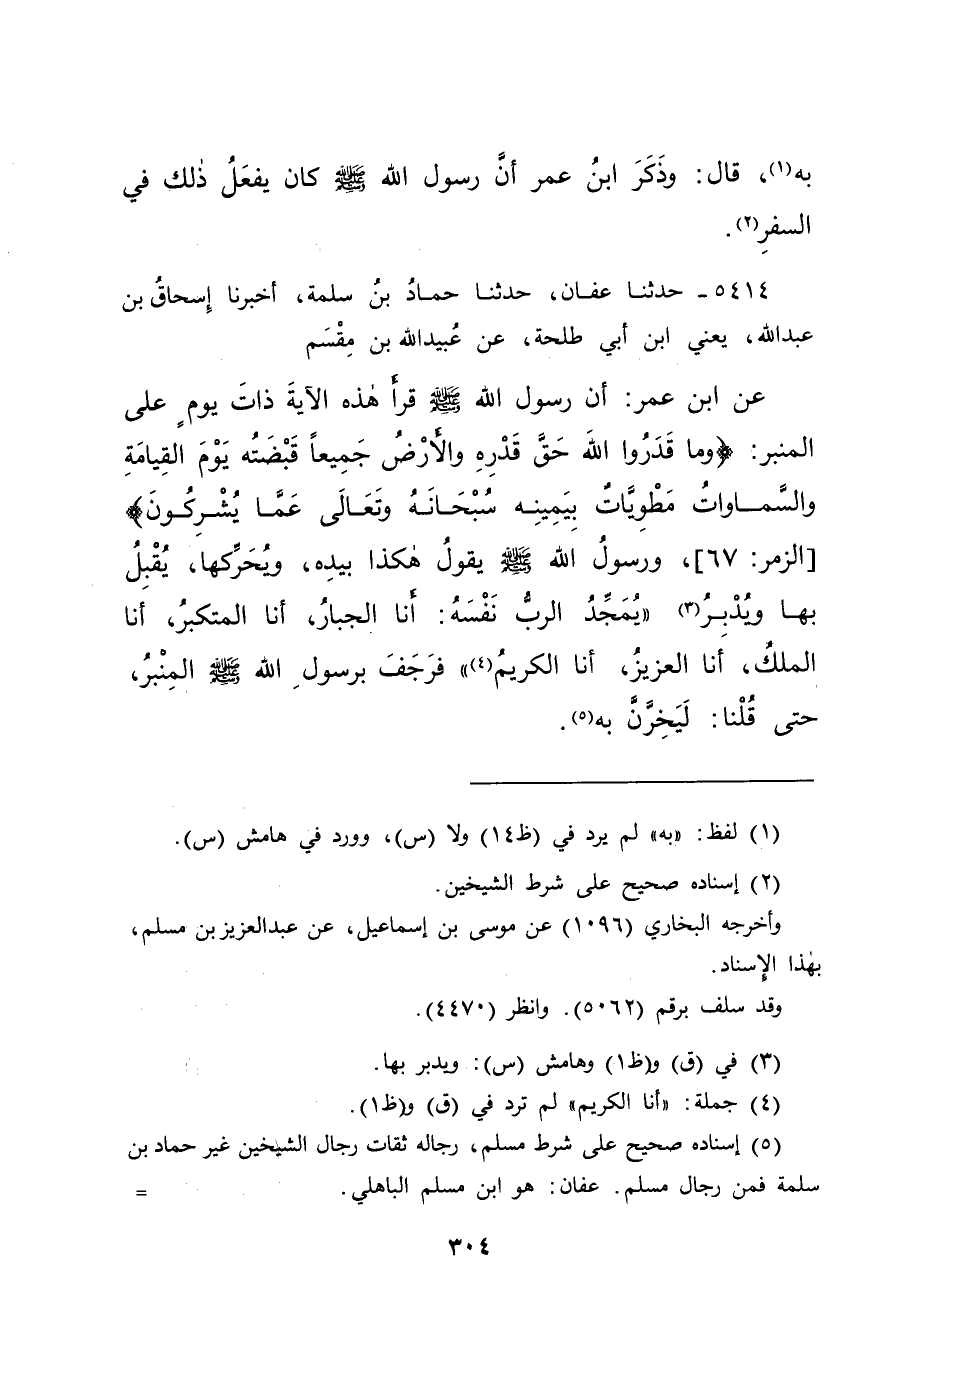 به(١)، قال: وذَكَرَ ابنُ عمر أنَّ رسول الله ﷺ كان يفعَلُ ذٰلك في
السفرِ(٢).
٥٤١٤ - حدثنا عفان، حدثنا حمادُ بنُ سلمة، أخبرنا إِسحاقُ بن
عبدالله، يعني ابن أبي طلحة، عن عُبيدالله بن مِقْسَم
عن ابن عمر: أن رسول الله ﷺ قرأَ هٰذه الآيةَ ذاتَ يومٍ على
المنبر: ﴿وما قَدَرُوا اللهَ حَقَّ قَدْرِهِ والأَرْضُ جَمِيعاً قَبْضَتُه يَوْمَ القِيامَةِ
والسَّماواتُ مَطْوِيَّاتٌ بِيَمِينِه سُبْحَانَهُ وتَعَالَى عَمَّا يُشْرِكُونَ﴾
[الزمر: ٦٧]، ورسولُ الله ﷺ يقولُ هٰكذا بيدِه، ويُحَرِّكها، يُقْبِلُ
بها ويُدْبِرُ(٣) «يُمَجِّدُ الربُّ نَفْسَهُ: أَنا الجبارُ، أنا المتكبرُ، أنا
الملكُ، أنا العزيزُ، أنا الكريمُ(٤)» فرَجَفَ برسولِ الله ﷺ المِنْبرُ،
حتى قُلْنا: لَيَخِرَّنَّ به(٥).
(١) لفظ: «به» لم يرد في (ظ١٤) ولا (س)، وورد في هامش (س).
(٢) إسناده صحيح على شرط الشيخين.
وأخرجه البخاري (١٠٩٦) عن موسى بن إسماعيل، عن عبدالعزيز بن مسلم،
بهٰذا الإِسناد.
وقد سلف برقم (٥٠٦٢). وانظر (٤٤٧٠).
(٣) في (ق) و(ظ١) وهامش (س): ويدبر بها.
(٤) جملة: «أنا الكريم» لم ترد في (ق) و(ظ١).
(٥) إسناده صحيح على شرط مسلم، رجاله ثقات رجال الشيخين غير حماد بن
سلمة فمن رجال مسلم. عفان: هو ابن مسلم الباهلي. =
٣٠٤